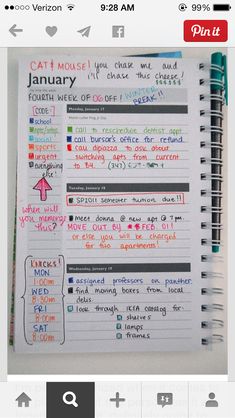 Verizon
9:28 AM
99%
Pin it
CAT & MOUSE! you chase me and
i'll chase this cheese!
January
$$$$$$
FOURTH WEEK OF OG OFF! WINTER
BREAK!!
CODE:
school
social
sports
urgent
everything
else!
Monday, January 17
call to reschedule dentist appt
call bursar's office for refund
call dipiazza to ask about
switching apts from current
to B4.
Tuesday, January 18
SP2011 semester tuition due!!
meet donna @ new apt @ 7pm.
MOVE OUT BY FEB. 01!
or else you will be charged
for two apartments!
when will
you memorize
this?
KNICKS!
MON
1:00m
WED
8:30m
FRI
8:00m
SAT
8:30m
Wednesday, January 19
assigned professors on panther.
find moving boxes from local
delis.
look through IKEA catalog for:
shelves
lamps
frames